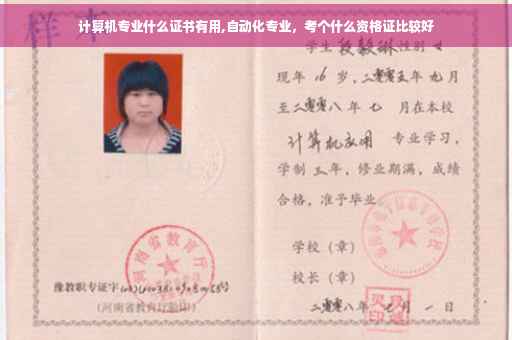 计算机专业什么证书有用,自动化专业，考个什么资格证比较好
样本
学生 段毅琳 性别 女
现年 16 岁，二零零五年 九月
至二零零八年 七 月在本校
计算机应用 专业学习，
学制 三年，修业期满，成绩
合格，准予毕业
学校（章）
校长（章）
二零零八年 七 月 一 日
河南省教育厅
豫教职专证字
（河南省教育厅验印）